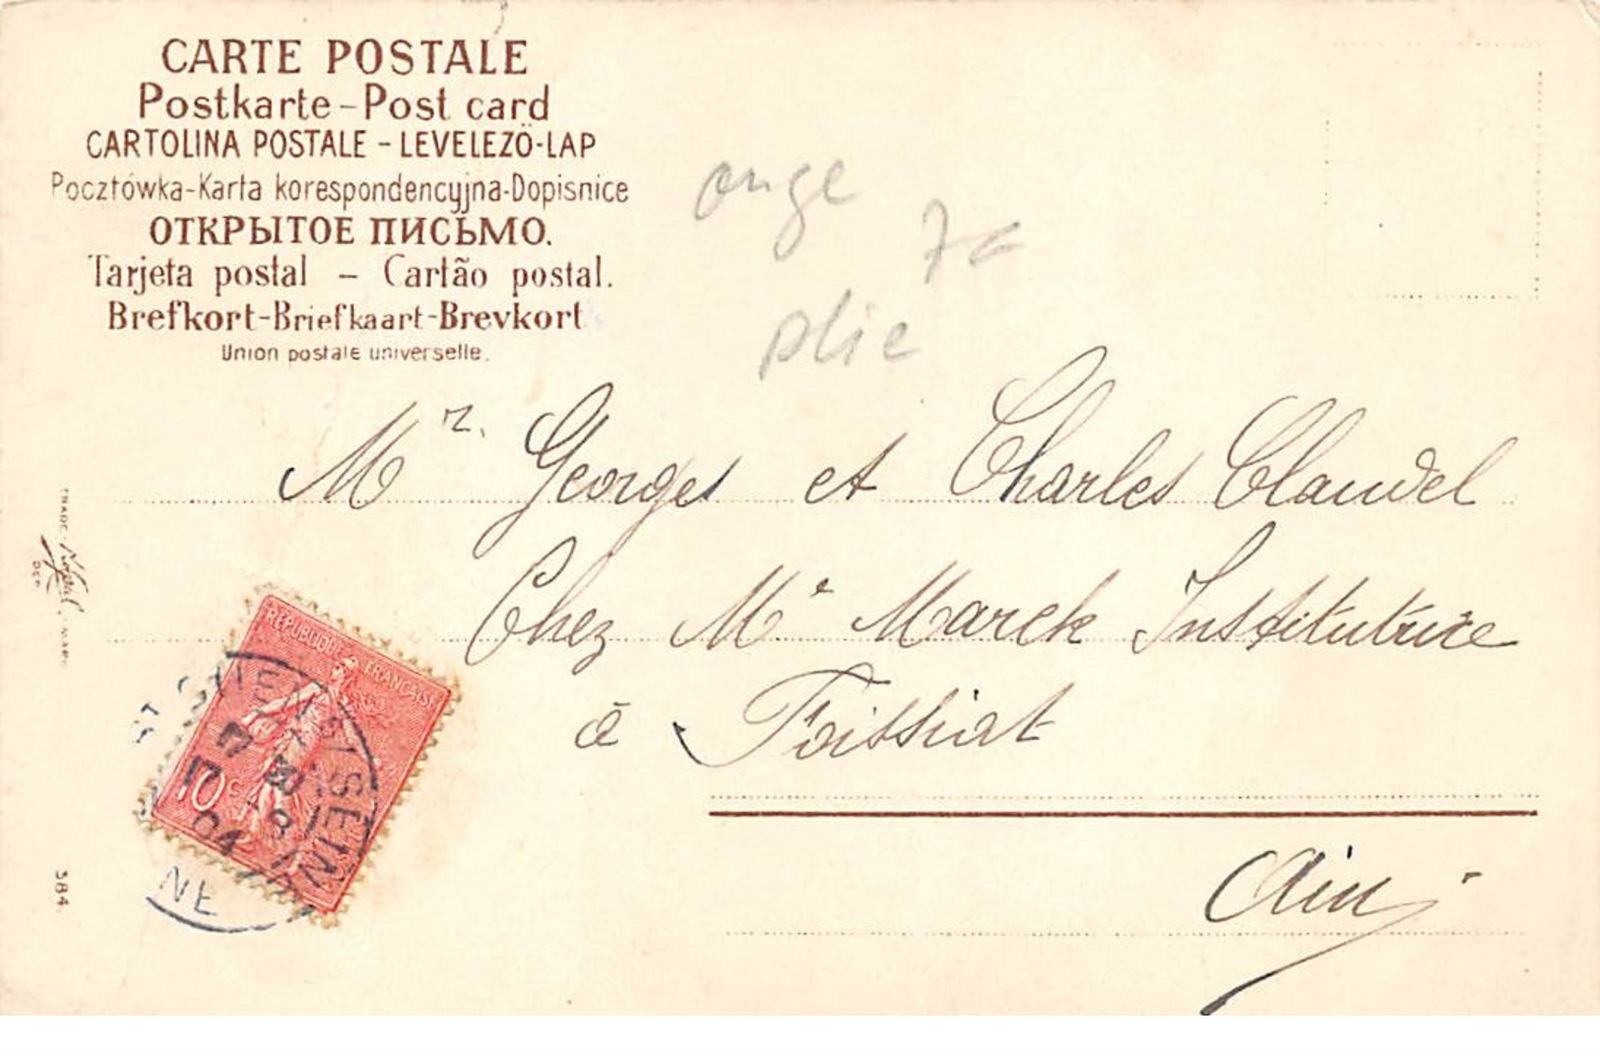 CARTE POSTALE
Postkarte - Post card
CARTOLINA POSTALE - LEVELEZÖ-LAP
Pocztówka-Karta korespondencyjna-Dopisnice
ОТКРЫТОЕ ПИСЬМО.
Tarjeta postal – Cartão postal.
Brefkort-Briefkaart-Brevkort
Union postale universelle.
ange
7€
plie
Mr. Georges et Charles Claudel
Chez Me Marck Institutrice
à Foissiat
Ain
TRADE
DEP
REPUBLIQUE FRANÇAISE
10 c
04
NE
384.